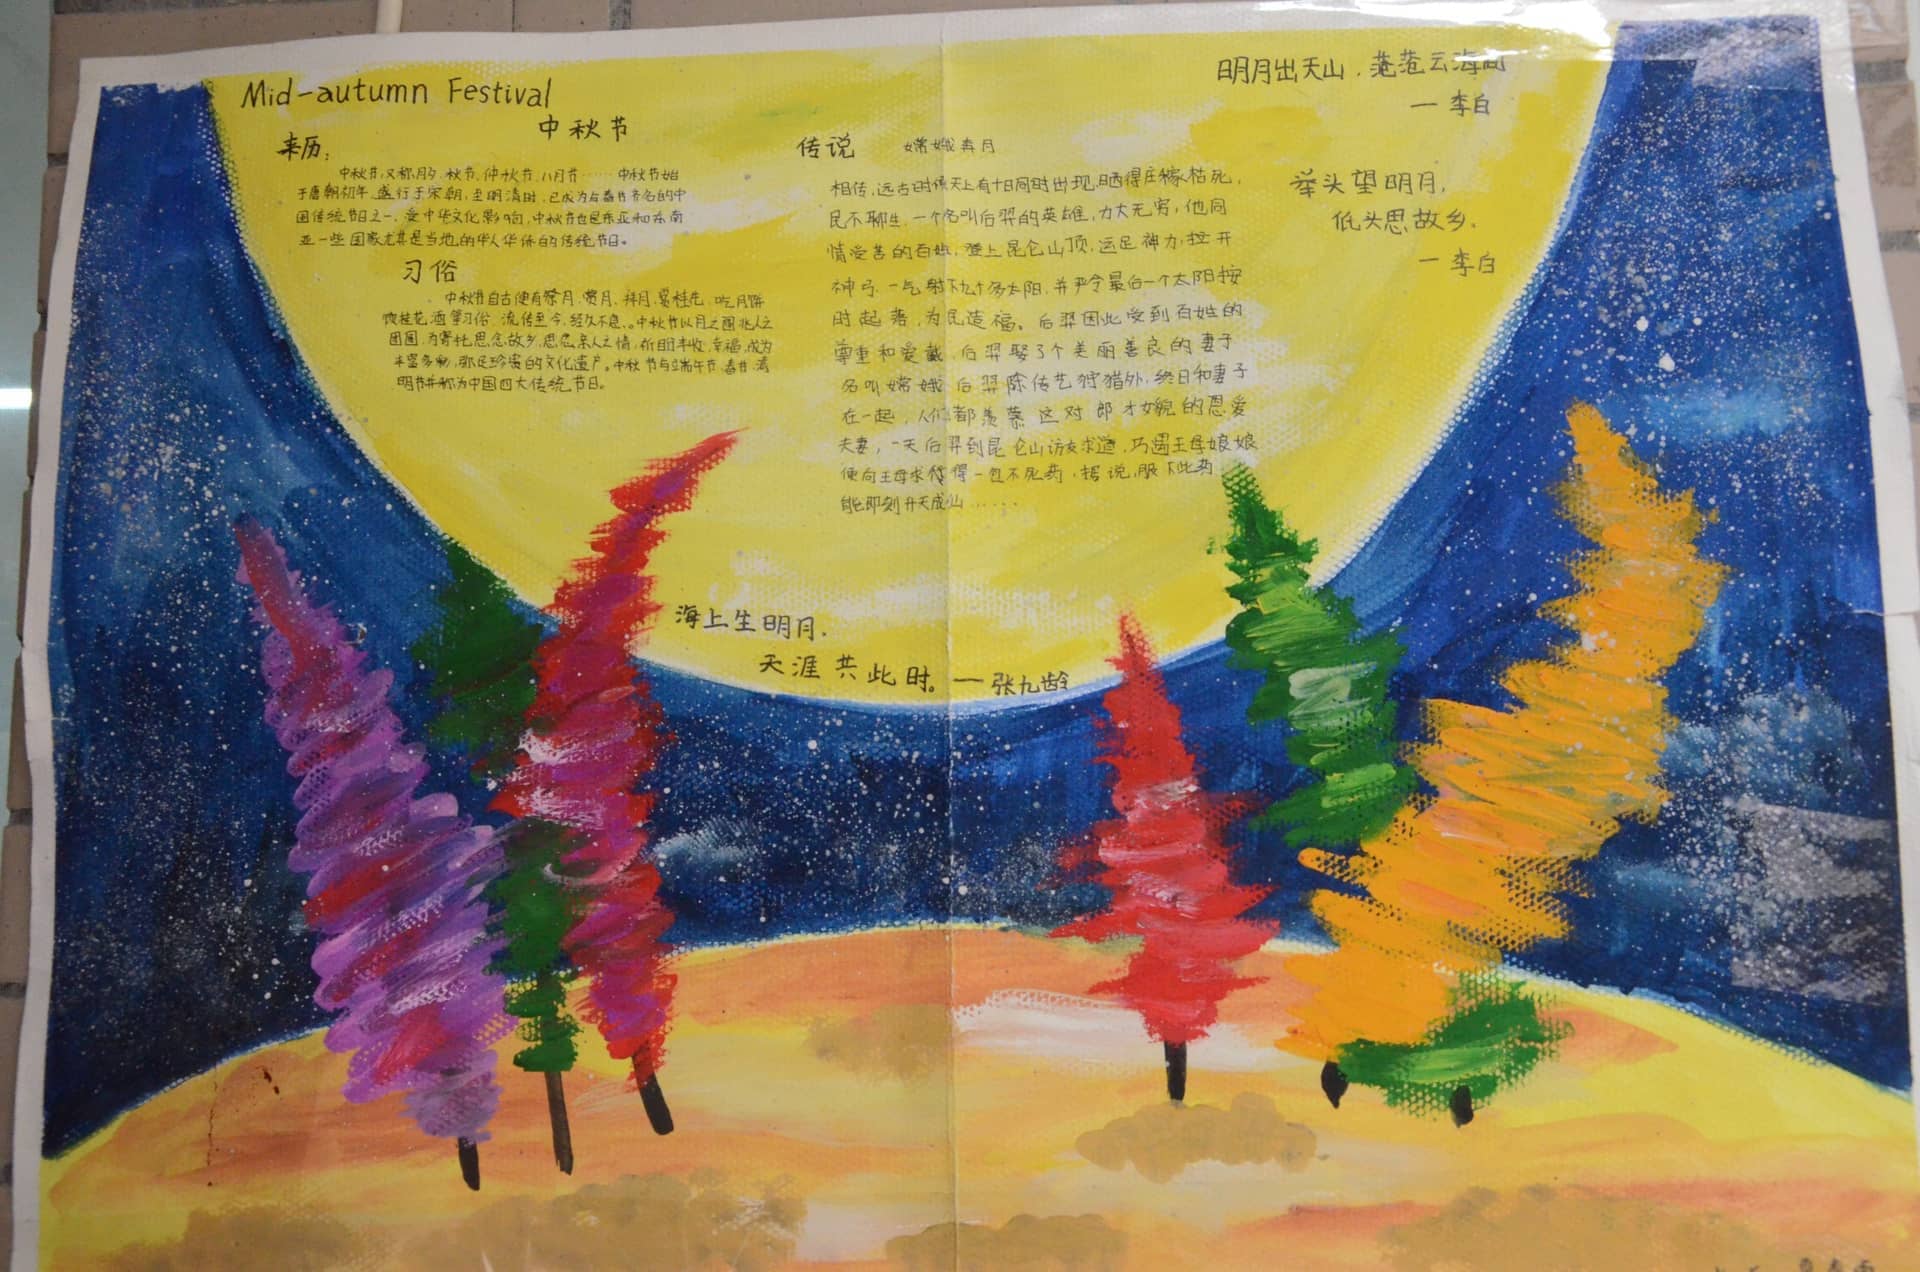 Mid-autumn Festival
中秋节
来历：
中秋节，又称月夕、秋节、仲秋节、八月节……中秋节始
于唐朝初年，盛行于宋朝，至明清时，已成为与春节齐名的中
国传统节日之一。受中华文化影响，中秋节也是东亚和东南
亚一些国家尤其是当地的华人华侨的传统节日。
习俗
中秋节自古便有祭月、赏月、拜月、赏桂花、吃月饼
饮桂花酒等习俗，流传至今，经久不息。中秋节以月之圆兆人之
团圆，为寄托思念故乡，思念亲人之情，祈盼丰收、幸福，成为
丰富多彩，弥足珍贵的文化遗产。中秋节与端午节、春节、清
明节并称为中国四大传统节日。
传说 嫦娥奔月
相传，远古时候天上有十日同时出现，晒得庄稼枯死，
民不聊生，一个名叫后羿的英雄，力大无穷，他同
情受苦的百姓，登上昆仑山顶，运足神力，拉开
神弓，一气射下九个多太阳，并严令最后一个太阳按
时起落，为民造福。后羿因此受到百姓的
尊重和爱戴，后羿娶了个美丽善良的妻子
名叫嫦娥，后羿除传艺狩猎外，终日和妻子
在一起，人们都羡慕这对郎才女貌的恩爱
夫妻，一天后羿到昆仑山访友求道，巧遇王母娘娘
便向王母求得一包不死药，据说，服下此药
能即刻升天成仙……
明月出天山，苍茫云海间
—李白
举头望明月，
低头思故乡。
—李白
海上生明月，
天涯共此时。—张九龄